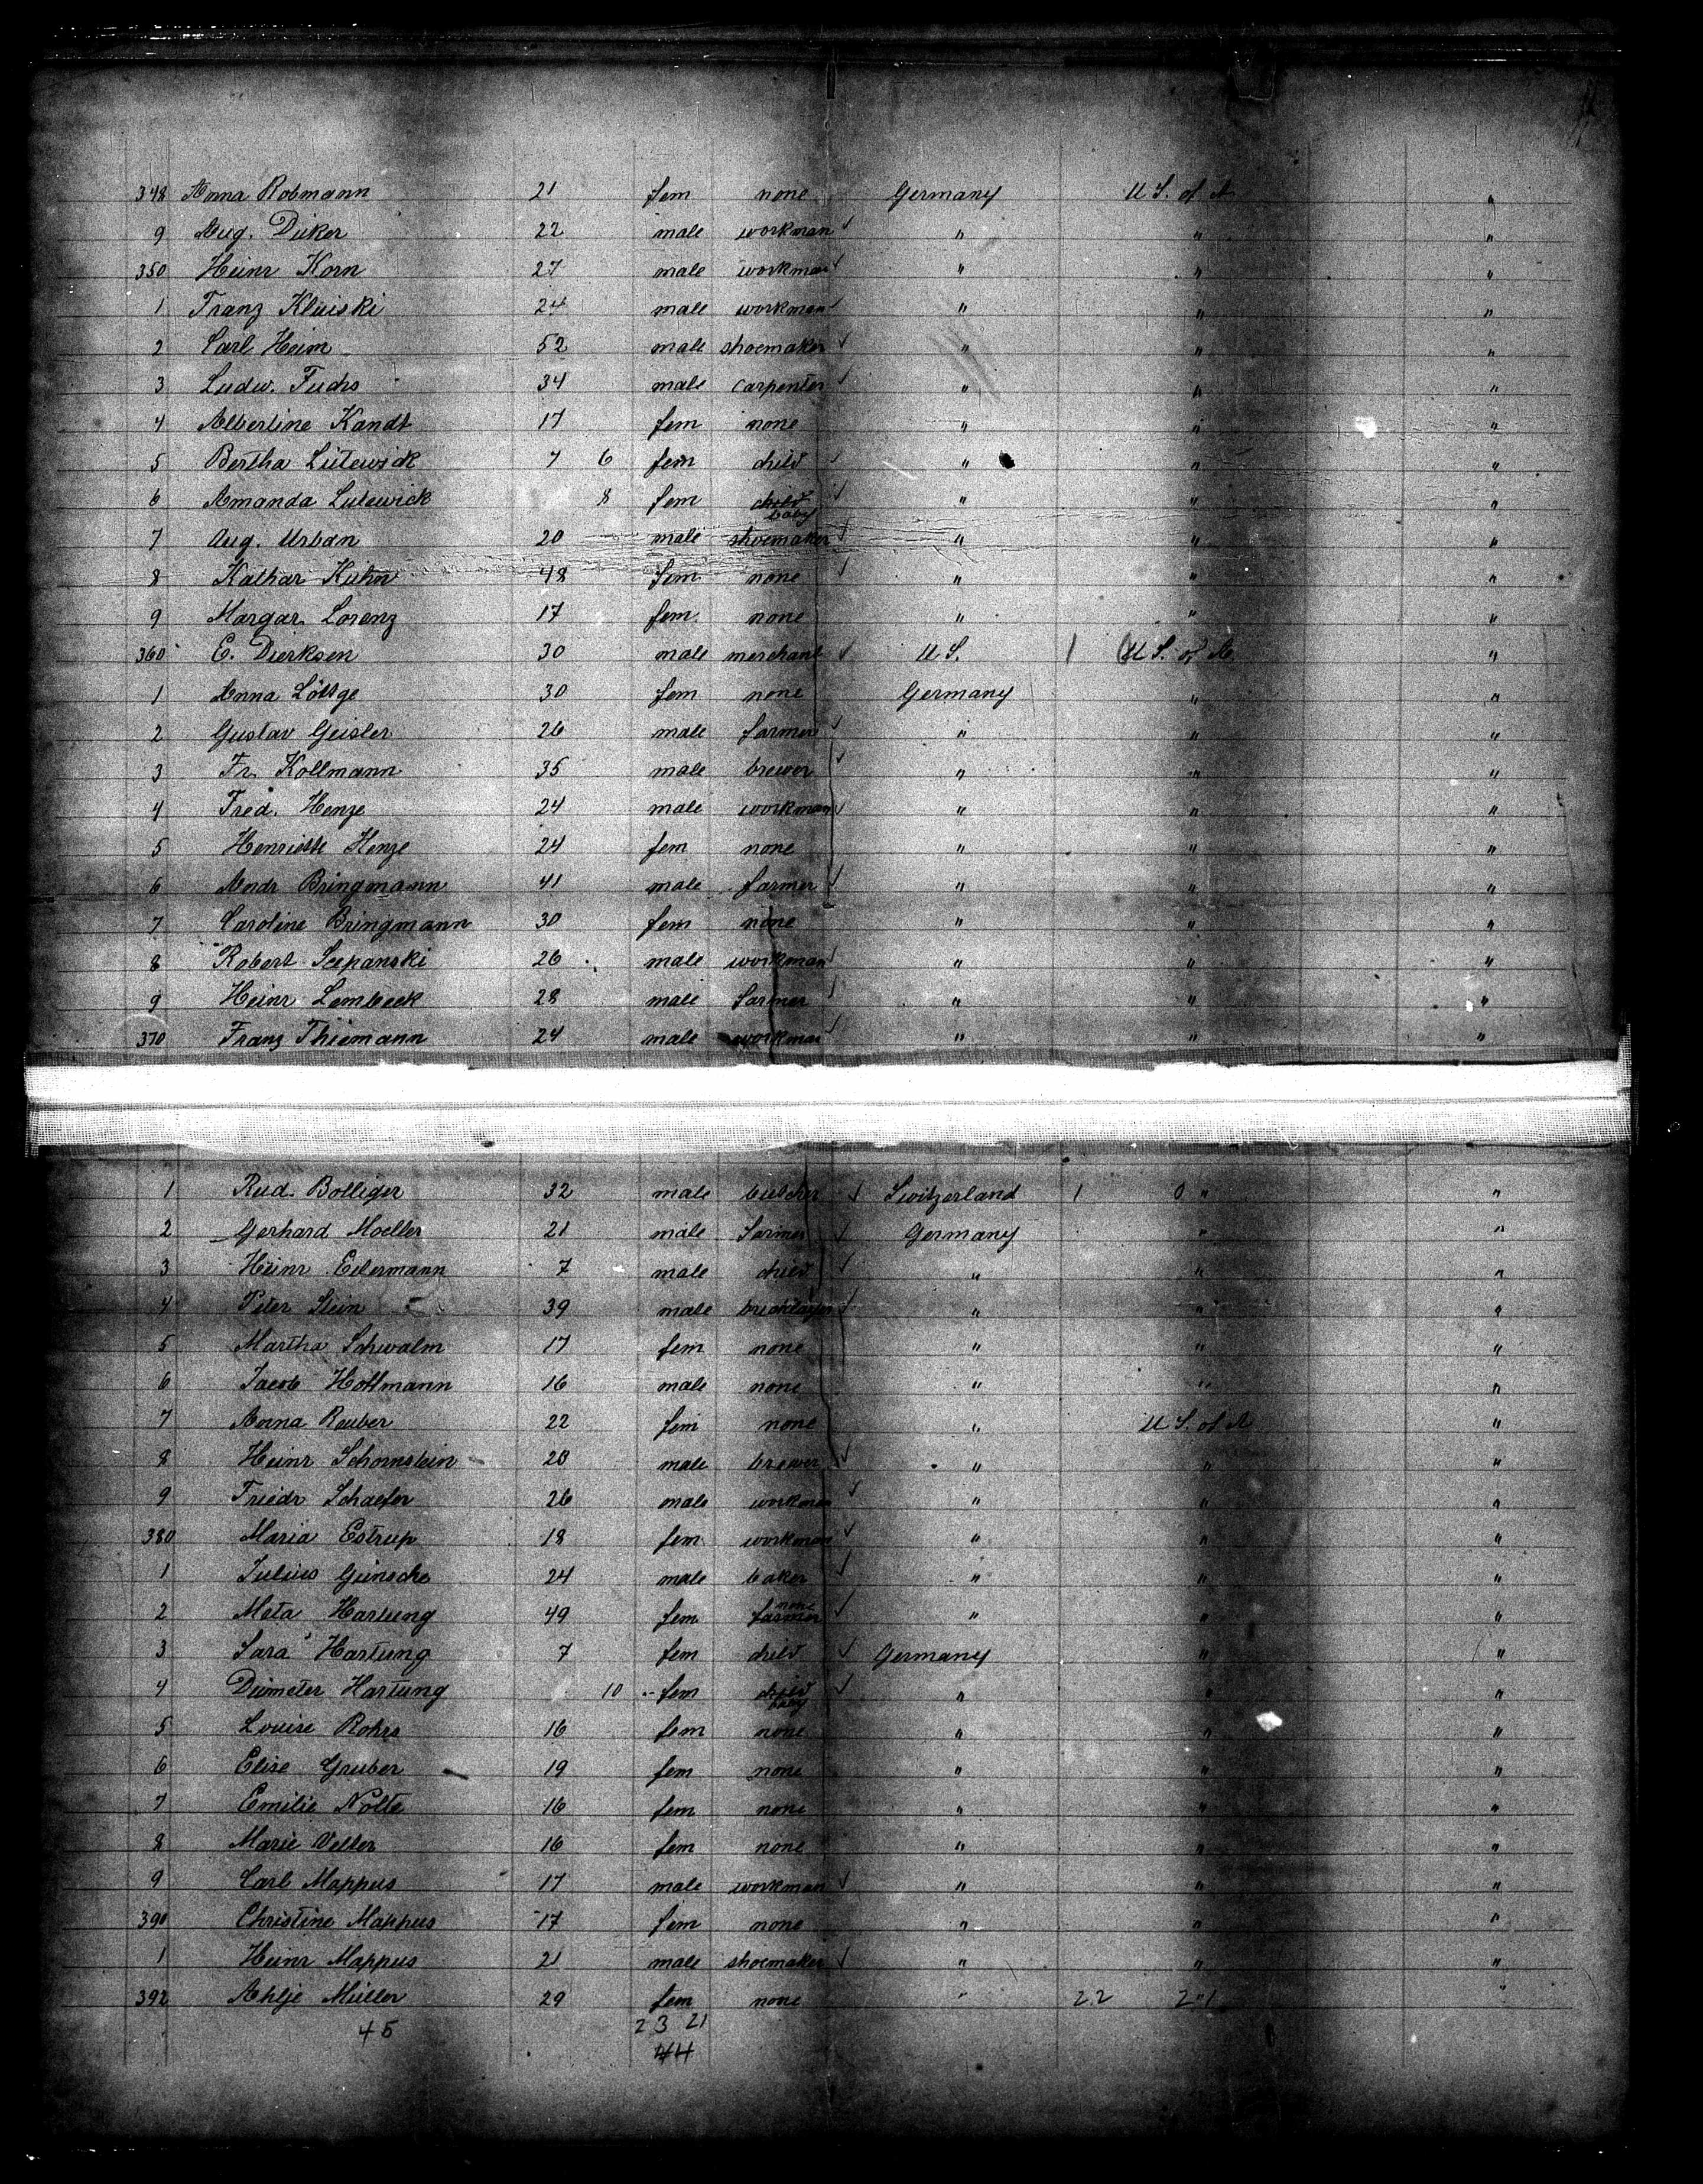 348 Anna Robmann 21 fem none Germany U S. of A "
9 Aug. Düker 22 male workman " " "
350 Heinr Korn 27 male workman " " "
1 Franz Kluiski 24 male workman " " "
2 Carl Heim 52 male shoemaker " " "
3 Ludw. Fuchs 34 male carpenter " " "
4 Albertine Kandt 17 fem none " " "
5 Bertha Lütewick 7 6 fem child " " "
6 Amanda Lutewick 8 fem child baby " " "
7 Aug. Urban 20 male shoemaker " " "
8 Kathar Kuhn 48 fem none " " "
9 Margar. Lorenz 17 fem. none " " "
360 E. Dierksen 30 male merchant U S. 1 U S. of A. "
1 Anna Löttge 30 fem none Germany " "
2 Gustav Geisler 26 male farmer " " "
3 Fr. Kollmann 35 male brewer " " "
4 Fred. Henze 24 male workman " " "
5 Henriette Henze 24 fem none " " "
6 Andr Bringmann 41 male farmer " " "
7 Caroline Bringmann 30 fem none " " "
8 Robert Scepanski 26 male workman " " "
9 Heinr Lembeck 28 male farmer " " "
370 Franz Thiemann 24 male workman " " "
1 Rud. Bolliger 32 male butcher Switzerland 1 0 " "
2 Gerhard Moeller 21 male farmer Germany " "
3 Heinr Eilermann 7 male child " " "
4 Peter Stein 39 male bricklayer " " "
5 Martha Schwalm 17 fem none " " "
6 Jacob Hottmann 16 male none " " "
7 Anna Reuber 22 fem none " U S. of A "
8 Heinr Schornstein 28 male brewer " " "
9 Friedr Schaefer 26 male workman " " "
380 Maria Estrup 18 fem workman " " "
1 Julius Günsche 24 male baker " " "
2 Meta Hartung 49 fem farmer none " " "
3 Sara Hartung 7 fem child Germany " "
4 Diemeter Hartung 10 fem child baby " " "
5 Louise Rohrs 16 fem none " " "
6 Elise Gruber 19 fem none " " "
7 Emilie Nolte 16 fem none " " "
8 Marie Velter 16 fem none " " "
9 Carl Mappus 17 male workman " " "
390 Christine Mappus 17 fem none " " "
1 Heinr Mappus 21 male shoemaker " " "
392 Ahlje Müller 29 fem none " 22 2 " 1 "
45 23 21
44